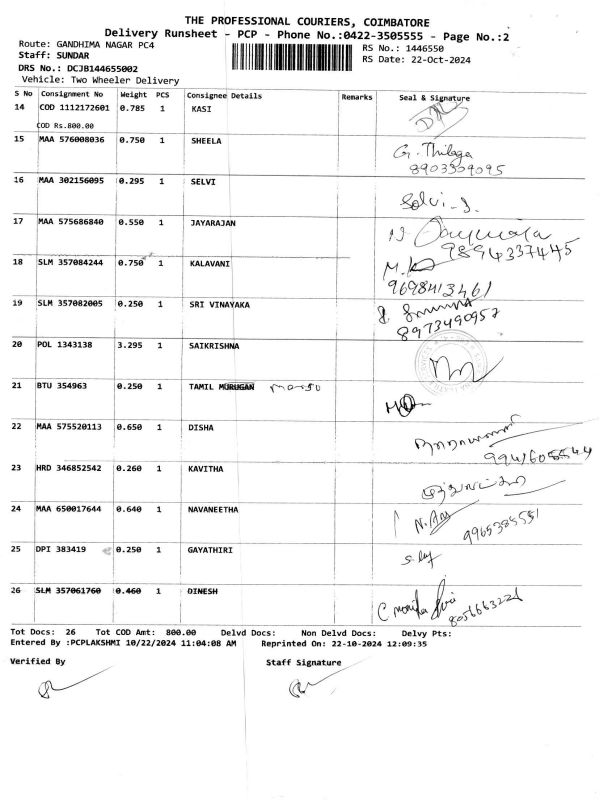 THE PROFESSIONAL COURIERS, COIMBATORE
Delivery Runsheet - PCP - Phone No.:0422-3505555 - Page No.:2
Route: GANDHIMA NAGAR PC4 RS No.: 1446550
Staff: SUNDAR RS Date: 22-Oct-2024
DRS No.: DCJB144655002
Vehicle: Two Wheeler Delivery
S No Consignment No Weight PCS Consignee Details Remarks Seal & Signature
14 COD 1112172601 0.785 1 KASI
COD Rs.800.00
15 MAA 576008036 0.750 1 SHEELA G. Thilaga
8903309095
16 MAA 302156095 0.295 1 SELVI Selvi-J.
17 MAA 575686840 0.550 1 JAYARAJAN
9894337445
18 SLM 357084244 0.750 1 KALAVANI
9698413461
19 SLM 357082005 0.250 1 SRI VINAYAKA
8973490957
20 POL 1343138 3.295 1 SAIKRISHNA
21 BTU 354963 0.250 1 TAMIL MURUGAN
22 MAA 575520113 0.650 1 DISHA
23 HRD 346852542 0.260 1 KAVITHA
24 MAA 650017644 0.640 1 NAVANEETHA
9965385551
25 DPI 383419 0.250 1 GAYATHIRI
26 SLM 357061760 0.460 1 DINESH
8056663221
Tot Docs: 26 Tot COD Amt: 800.00 Delvd Docs: Non Delvd Docs: Delvy Pts:
Entered By :PCPLAKSHMI 10/22/2024 11:04:08 AM Reprinted On: 22-10-2024 12:09:35
Verified By Staff Signature